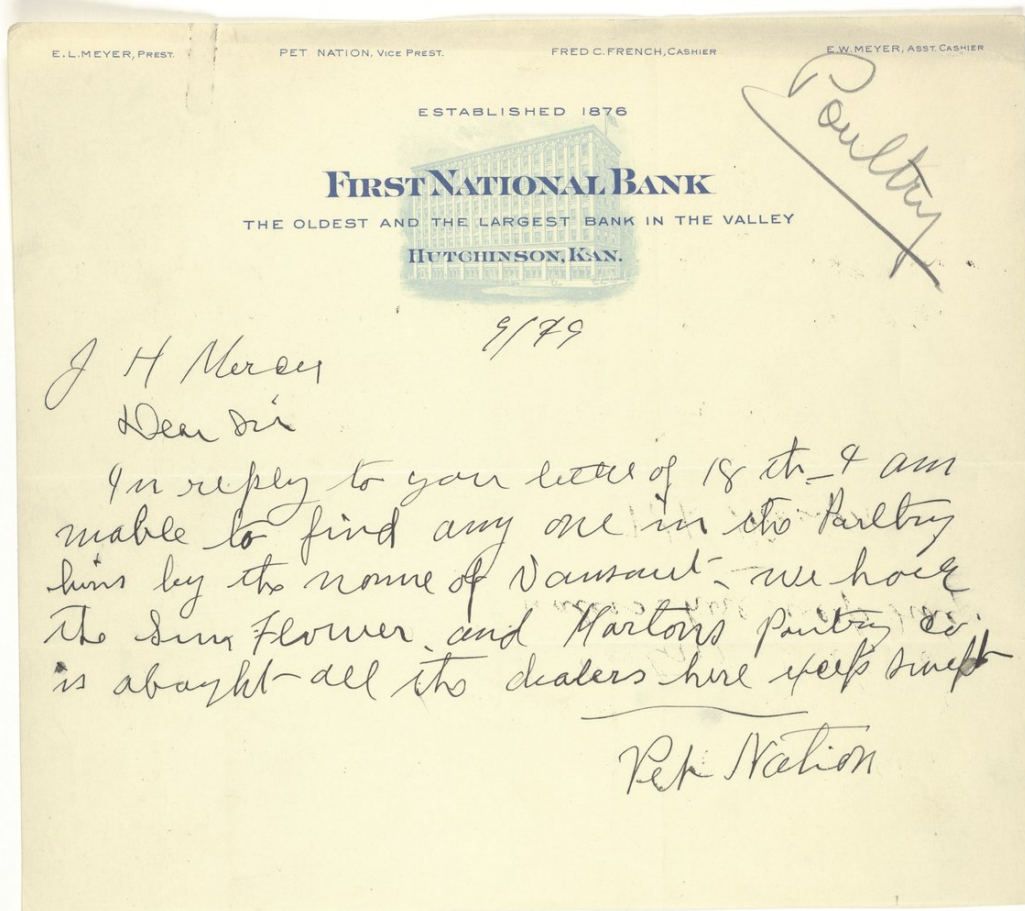 E.L. MEYER, PREST. PET NATION, VICE PREST. FRED C. FRENCH, CASHIER E.W. MEYER, ASST. CASHIER
Poultry
ESTABLISHED 1876
FIRST NATIONAL BANK
THE OLDEST AND THE LARGEST BANK IN THE VALLEY
HUTCHINSON, KAN.
J H Mercer
Dear Sir
In reply to your letter of 18 th - I am
unable to find any one in the Poultry
by the name of Vansant - we have
the Sun Flower and Martons Poultry Co.
is abaght all the dealers here excep swift
Pet Nation